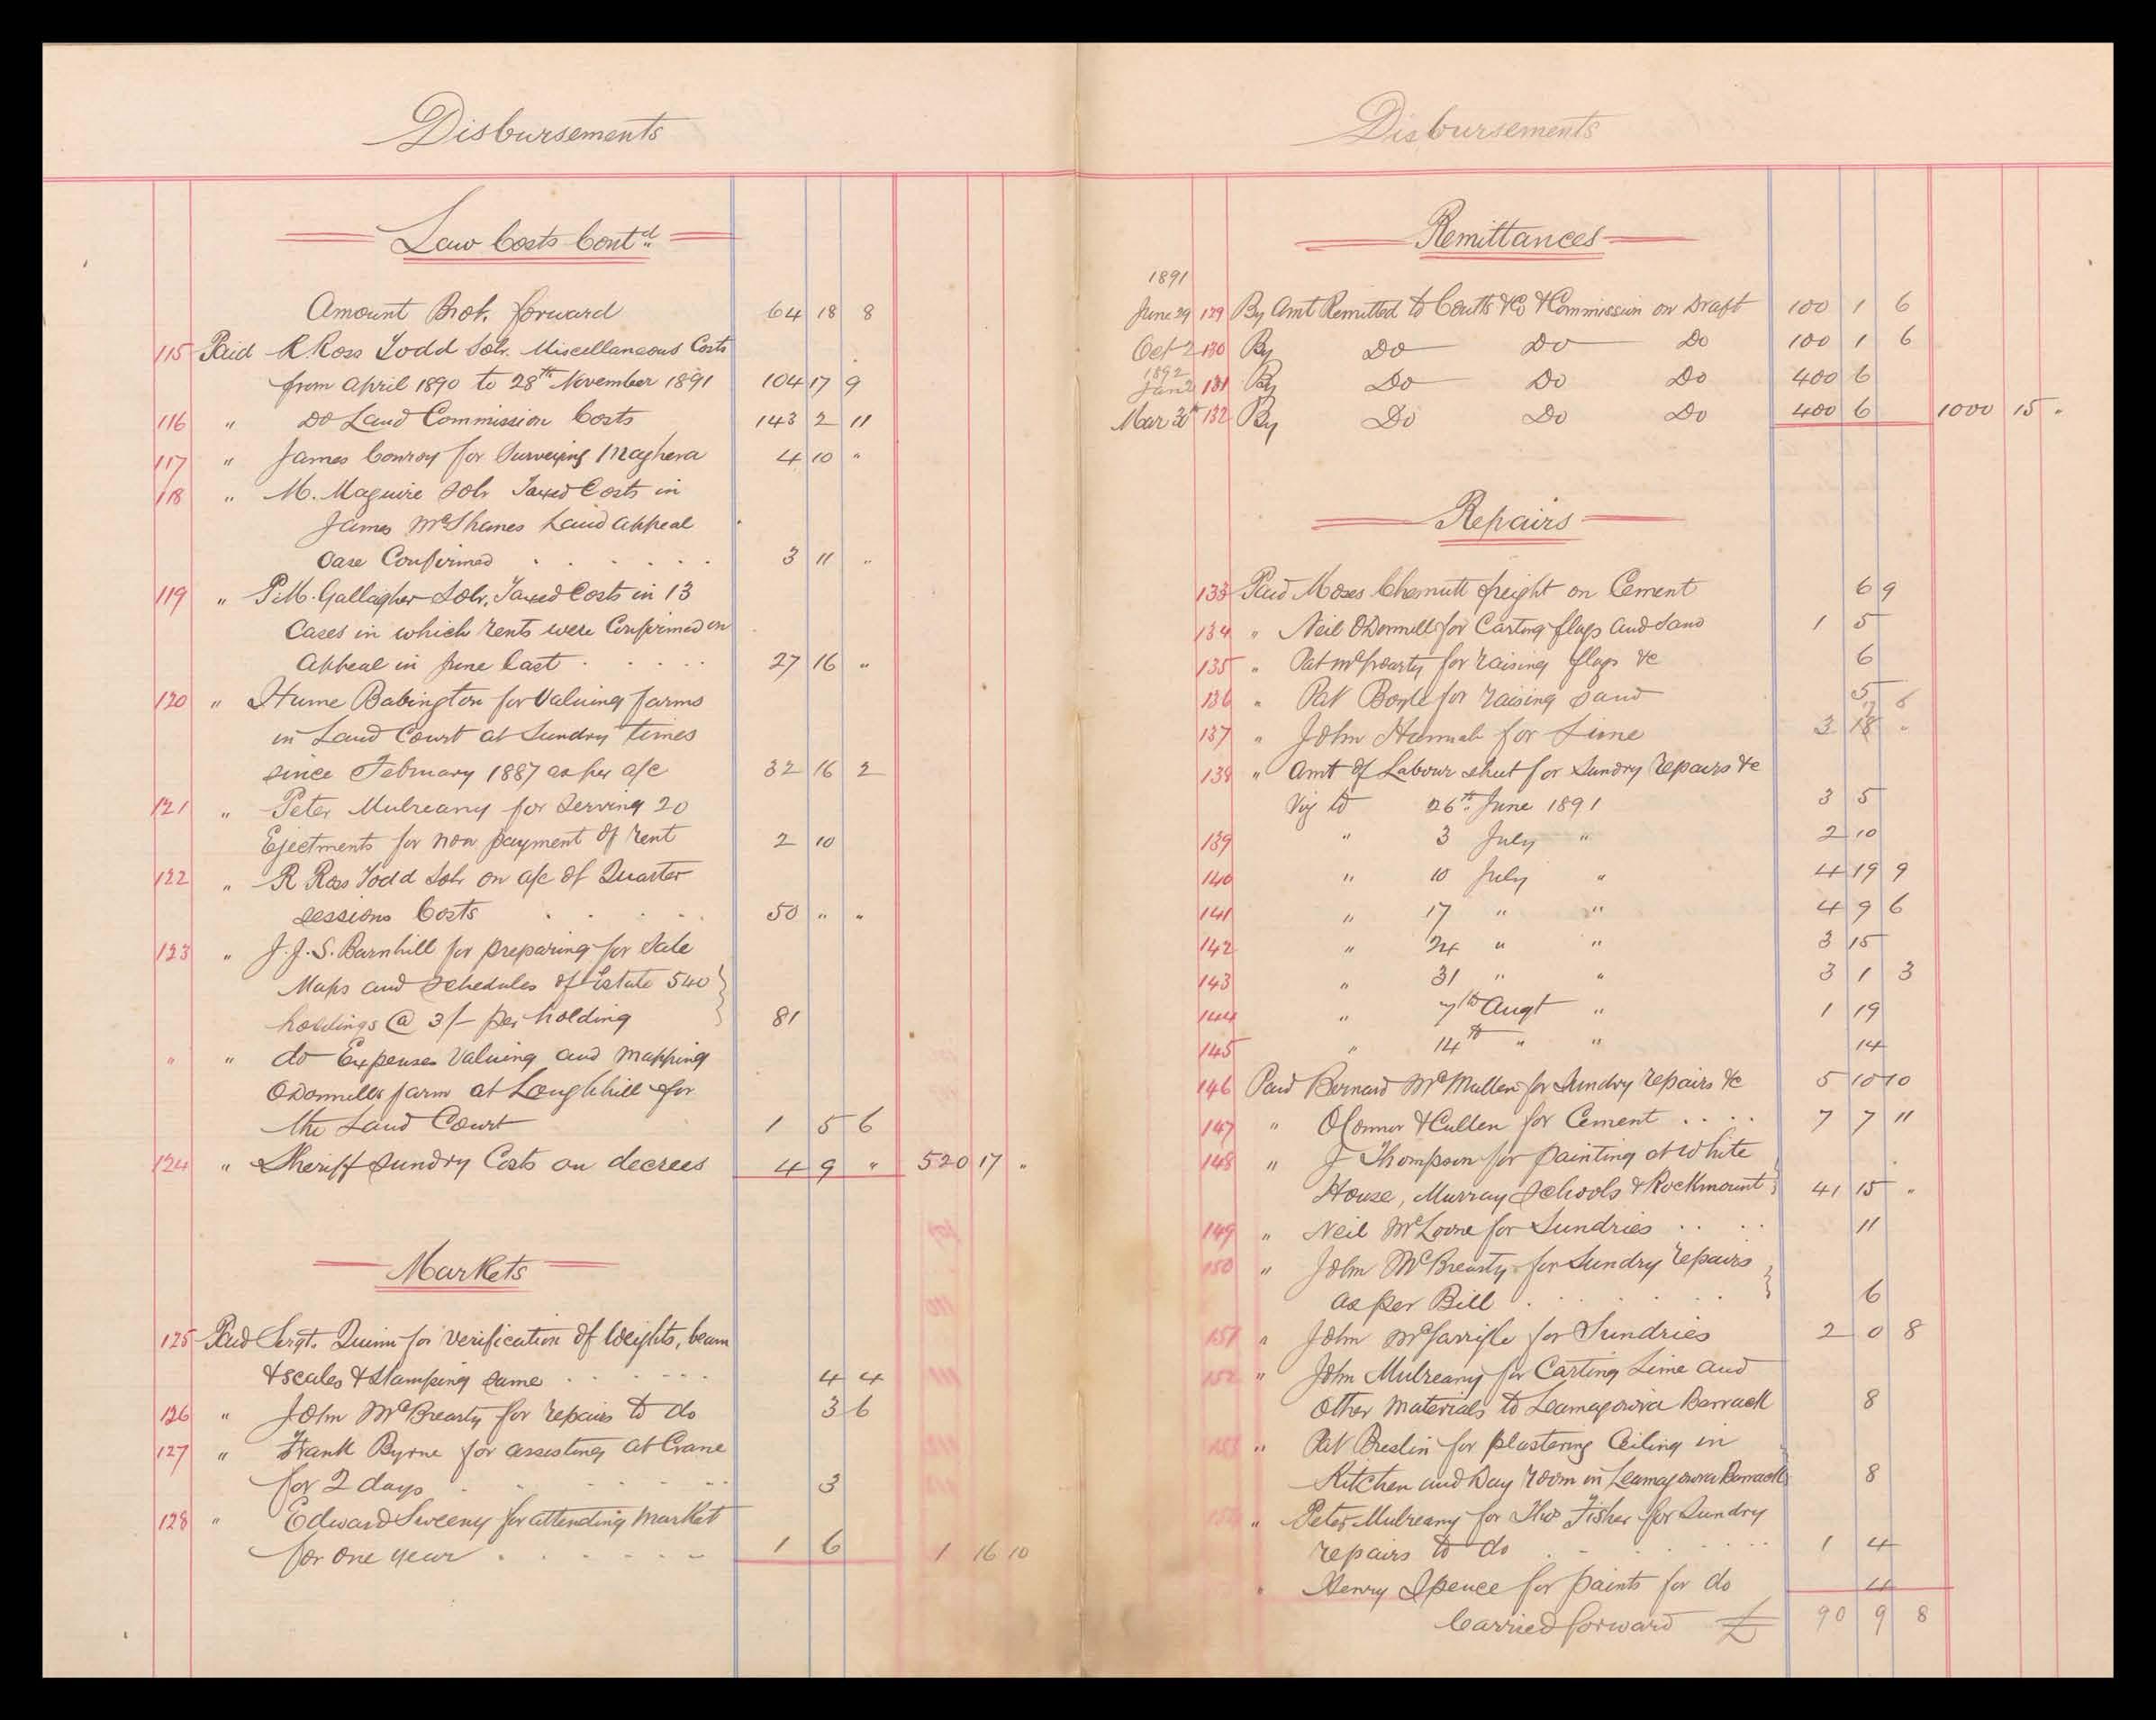 Disbursements
Law Costs Contd
Amount Brot. forward 64 18 8
115 Paid R Ross Todd Solr. Miscellaneous Costs
from April 1890 to 28th November 1891 104 17 9
116 " Do Land Commission Costs 143 2 11
117 " James Conroy for Surveying Maghera 4 10 "
118 " M. Maguire Solr Taxed Costs in
James McShanes Land Appeal
Case Confirmed . . . . . . 3 11 "
119 " P.M. Gallagher Solr. Taxed Costs in 13
Cases in which rents were Confirmed on
Appeal in June last . . . . . 27 16 "
120 " Hume Babington for Valuing farms
in Land Court at Sundry times
since February 1887 as per a/c 32 16 2
121 " Peter Mulreany for Serving 20
Ejectments for non payment of rent 2 10
122 " R Ross Todd Solr on a/c of Quarter
Sessions Costs . . . . . 50 " "
123 " J.J.S. Barnhill for preparing for Sale
Maps and Schedules of Estate 540
holdings @ 3/- per holding 81
" " do Expenses Valuing and Mapping
O'Donnells farm at Loughhill for
the Land Court 1 5 6
124 " Sheriff Sundry Costs on decrees 4 9 " 520 17 "
Markets
125 Paid Sergt. Quinn for Verification of Weights, beam
& scales & Stamping same . . . . . . 4 4
126 " John McBrearty for repairs to do 3 6
127 " Frank Byrne for assisting at Crane
for 2 days . . . . . 3
128 " Edward Sweeny for attending Market
for one year . . . . . . 1 6 1 16 10
Disbursements
Remittances
1891
June 29 129 By Amt Remitted to Coutts & Co & Commission on Draft 100 1 6
Oct 2 130 By Do Do Do 100 1 6
1892
Jan 2 131 By Do Do Do 400 6
Mar 30th 132 By Do Do Do 400 6 1000 15 "
Repairs
133 Paid Moses Chemutt freight on Cement 6 9
134 " Neil O'Donnell for Carting flags and Sand 1 5
135 " Pat for raising flags &c 6
136 " Pat Boyle for raising sand 5 6
137 " John Hannah for Lime 3 "
138 " Amt of Labour sheet for Sundry repairs &c
Viz to 26th June 1891 3 5
139 " 3 July " 2 10
140 " 10 July " 4 19 9
141 " 17 " " 4 9 6
142 " 24 " " 3 15
143 " 31 " " 3 1 3
144 " 7th Augt " 1 19
145 " 14th " " 14
146 Paid Bernard McMullen for Sundry repairs &c 5 10 10
147 " O'Connor & Cullen for Cement . . . . 7 7 11
148 " J Thompson for painting at White
House, Murray Schools & Rockmount 41 15 "
149 " Neil McLoone for Sundries . . . . 11
150 " John McBrearty for Sundry repairs
as per Bill . . . . . 6
151 " John McGarrigle for Sundries 2 0 8
152 " John Mulreany for Carting Lime and
other Materials to Leamagowra Barrack 8
153 " Pat Breslin for plastering Ceiling in
Kitchen and Day room in Leamagowra Barrack 8
154 " Peter Mulreany for Thos Fisher for Sundry
repairs to do . . . . . . 1 4
" Henry Spence for paints for do 4
Carried forward £ 90 9 8